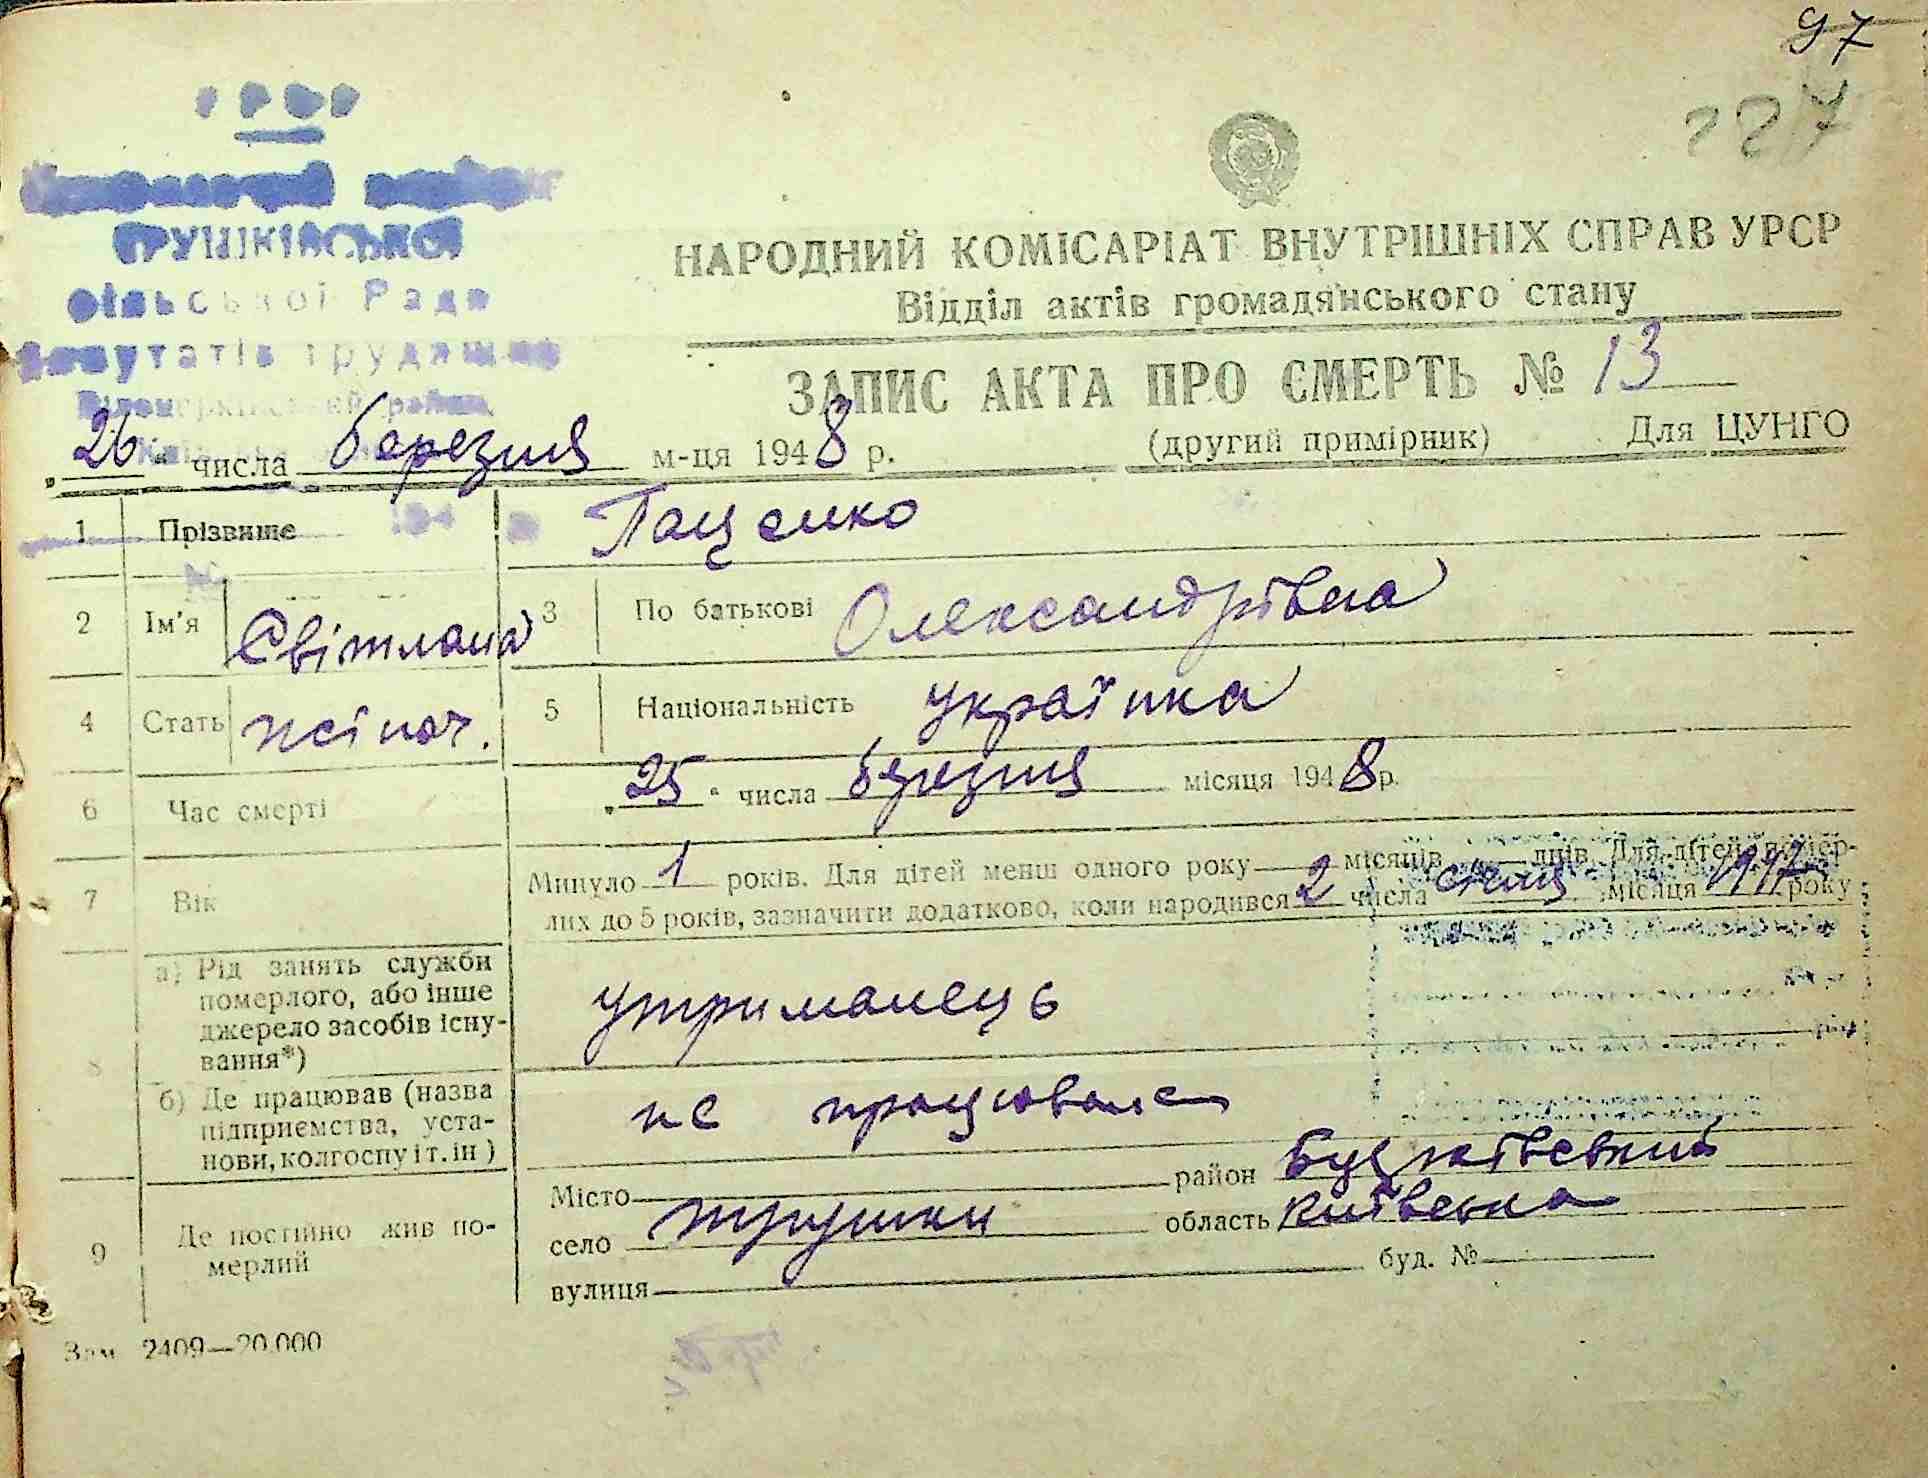 97
227
УРСР
ТРУШКІВСЬКОЇ
сільської Ради
депутатів трудящих
Білоцерківський район
НАРОДНИЙ КОМІСАРІАТ ВНУТРІШНІХ СПРАВ УРСР
Відділ актів громадянського стану
ЗАПИС АКТА ПРО СМЕРТЬ № 13
„26" числа березня м-ця 1948 р. (другий примірник) Для ЦУНГО
1 Прізвище Паценко
2 Ім'я Світлана 3 По батькові Олександрівна
4 Стать жіноч. 5 Національність українка
6 Час смерті „25" числа березня місяця 1948 р.
7 Вік Минуло 1 років. Для дітей менш одного року — місяців — днів. Для дітей, помер-
лих до 5 років, зазначити додатково, коли народився 2 числа січня місяця 1947 року
8 а) Рід занять служби
померлого, або інше
джерело засобів існу-
вання*) утриманець
б) Де працював (назва
підприємства, уста-
нови, колгоспу і т. ін) не працювала
9 Де постійно жив по-
мерлий
Місто — район
село Трушки область Київська
вулиця — буд. № —
Зам. 2409—20.000